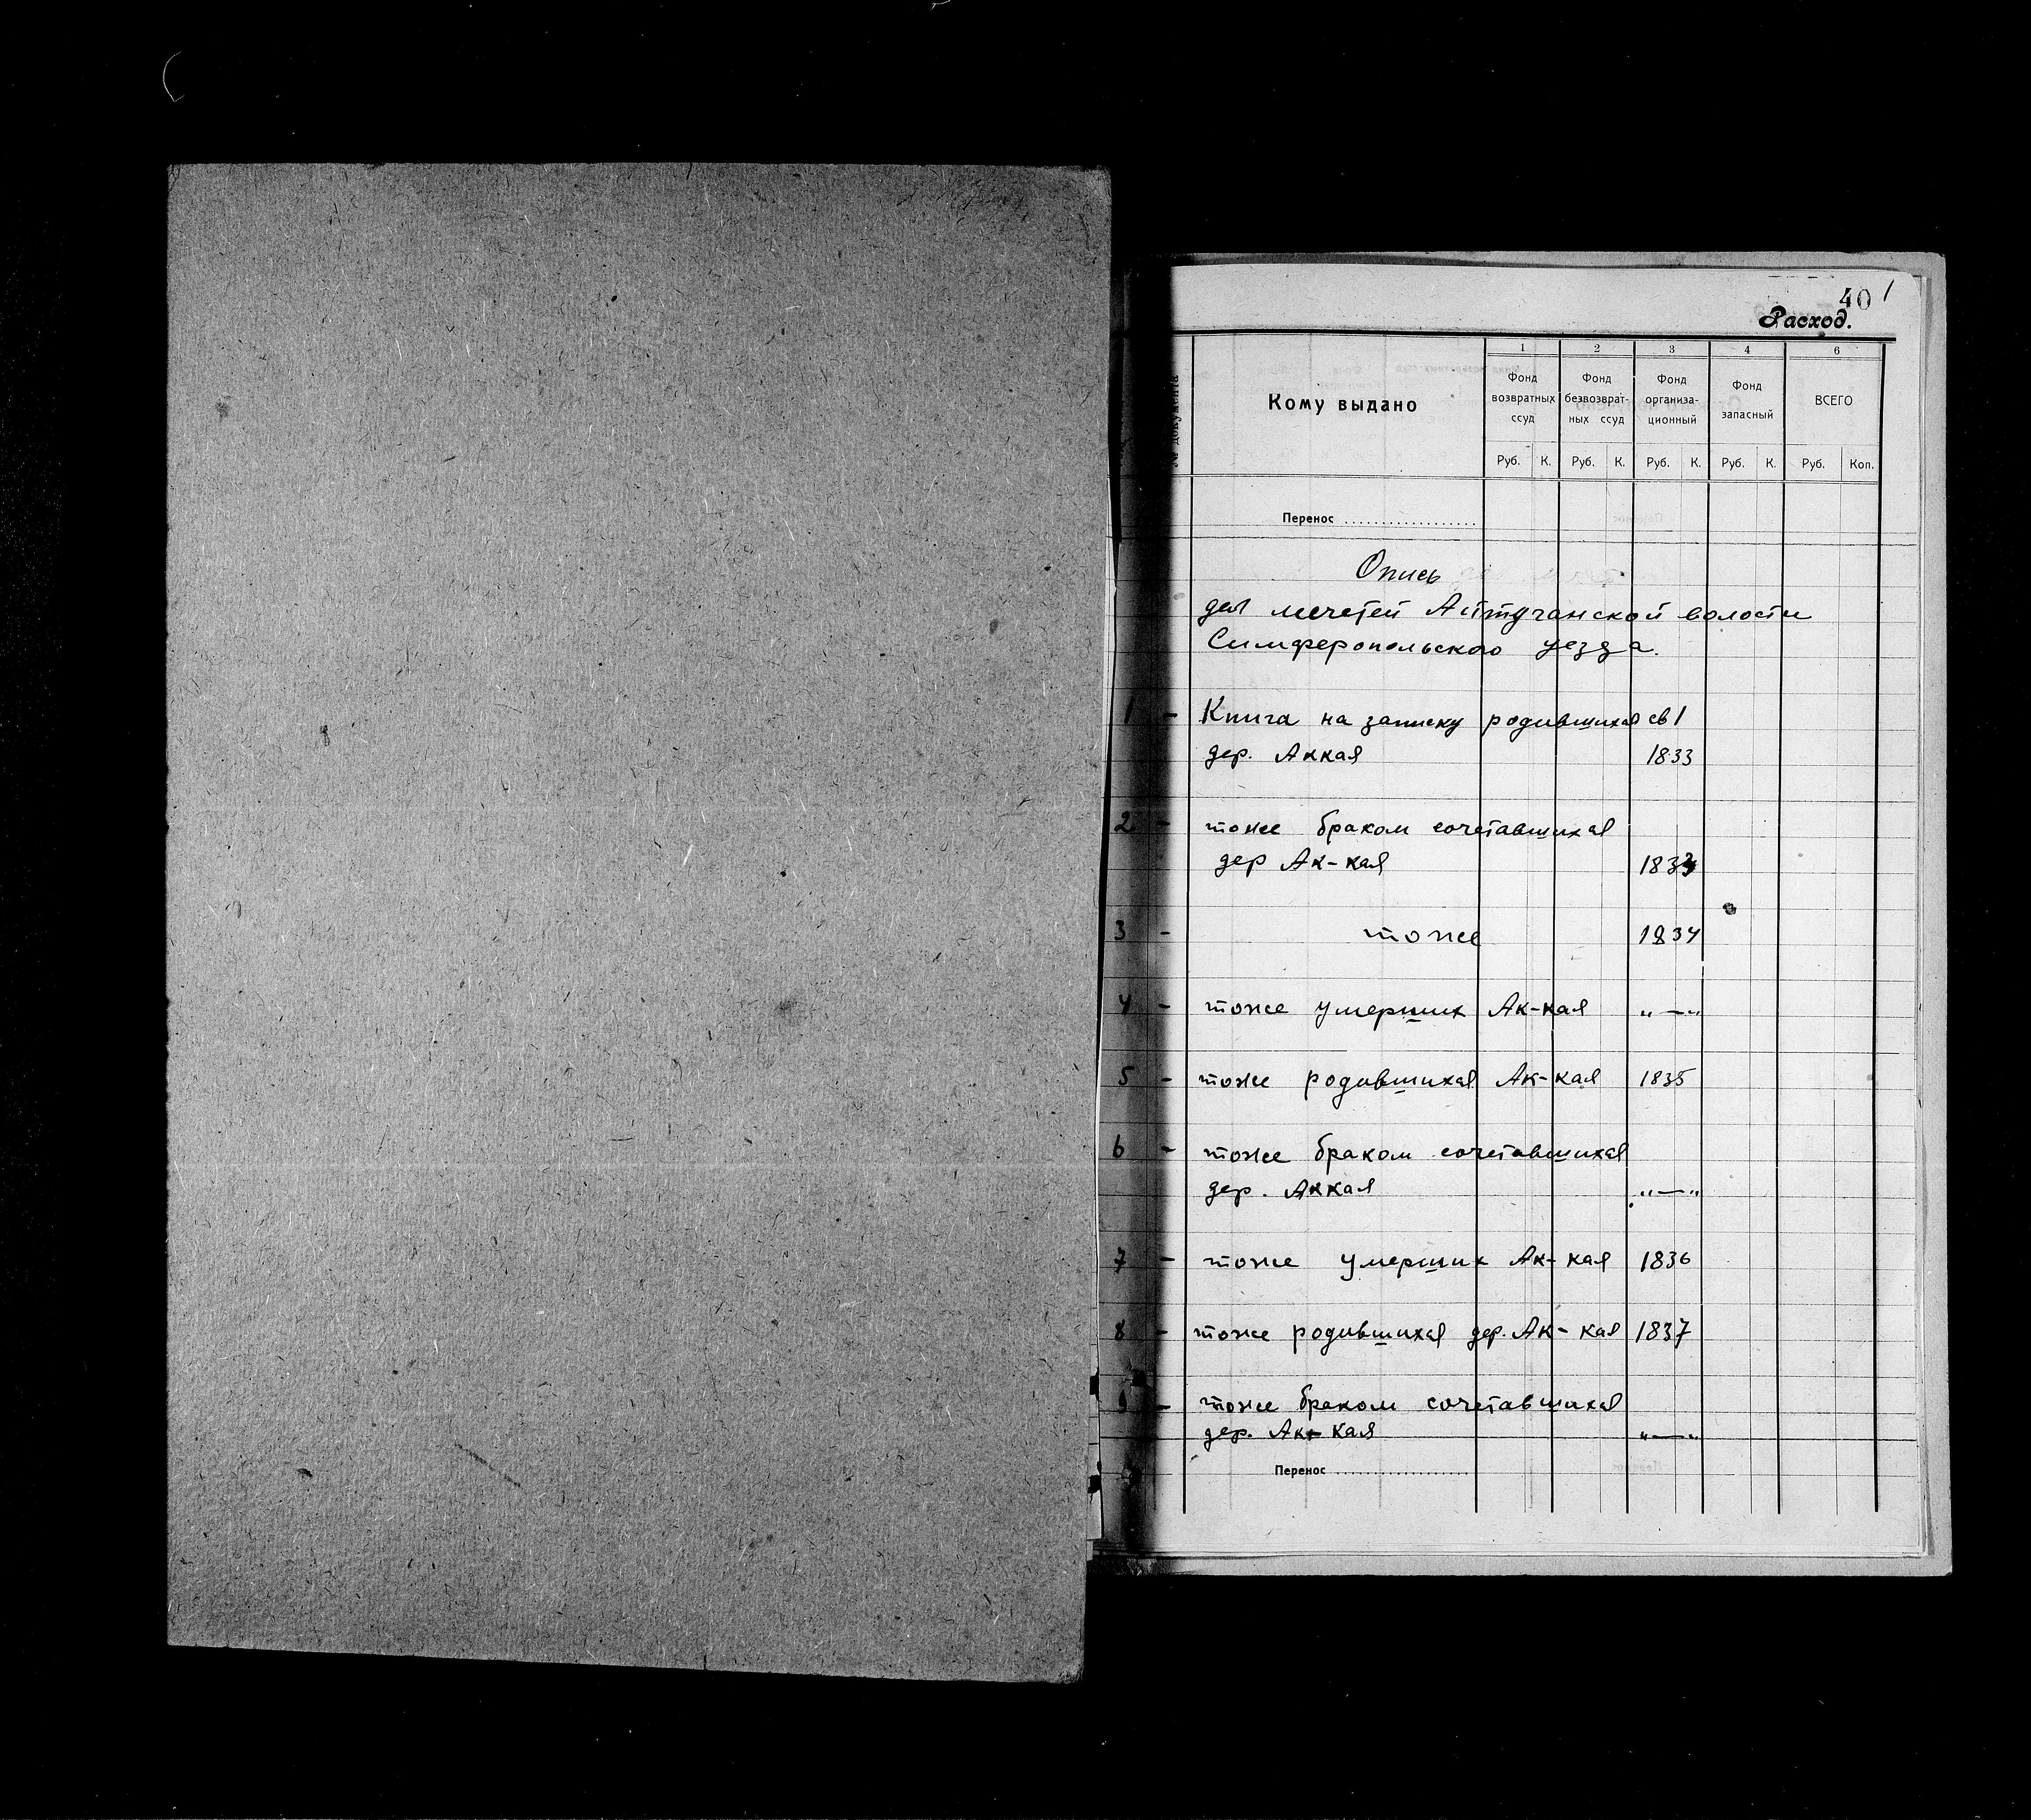 40 1
Расход.
№ документа
Кому выдано
1
Фонд
возвратных
ссуд
2
Фонд
безвозврат-
ных ссуд
3
Фонд
организа-
ционный
4
Фонд
запасный
6
ВСЕГО
Руб. К. Руб. К. Руб. К. Руб. К. Руб. Коп.
Перенос
Опись
дел мечетей Айтуганской волости
Симферопольского уезда.
1 - Книга на записку родившихся св 1
дер. Аккая 1833
2 - тоже браком сочетавшихся
дер Ак-кая 1833
3 - тоже 1834
4 - тоже умерших Ак-кая "—"
5 - тоже родившихся Ак-кая 1835
6 - тоже браком сочетавшихся
дер. Аккая "—"
7 - тоже умерших Ак-кая 1836
8 - тоже родившихся дер. Ак-кая 1837
9 - тоже браком сочетавшихся
дер. Ак-кая "—"
Перенос